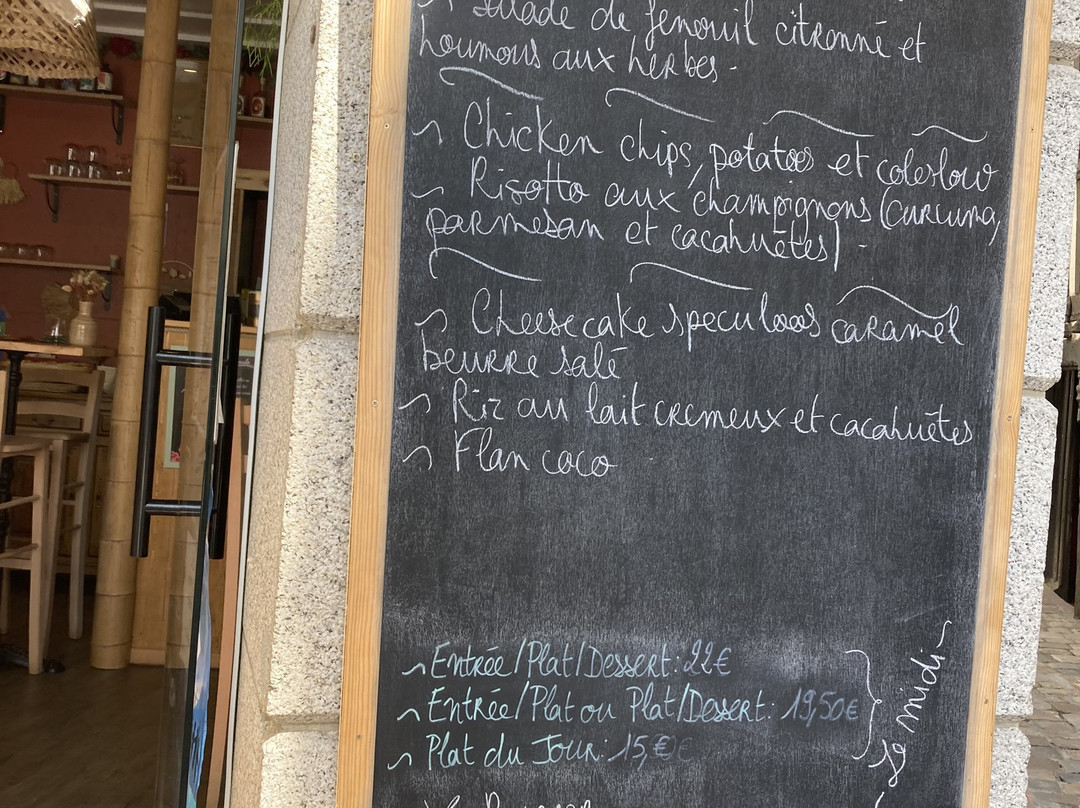 ~ salade de fenouil citronné et
houmous aux herbes -
~ Chicken chips, potatoes et coleslow
~ Risotto aux champignons (curcuma,
parmesan et cacahuètes) -
~ Cheesecake speculoos caramel
beurre salé
~ Riz au lait crémeux et cacahuètes
~ Flan coco
~ Entrée/Plat/Dessert: 22€
~ Entrée/Plat ou Plat/Dessert: 19,50€
~ Plat du Jour: 15,€
le midi ~